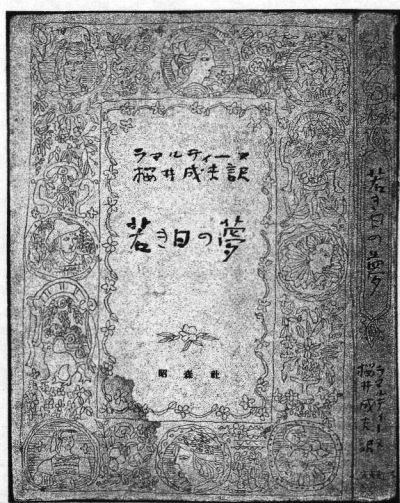 ラマルティーヌ
桜井成夫訳
若き日の夢
昭森社
若き日の夢
ラマルティーヌ
桜井成夫訳